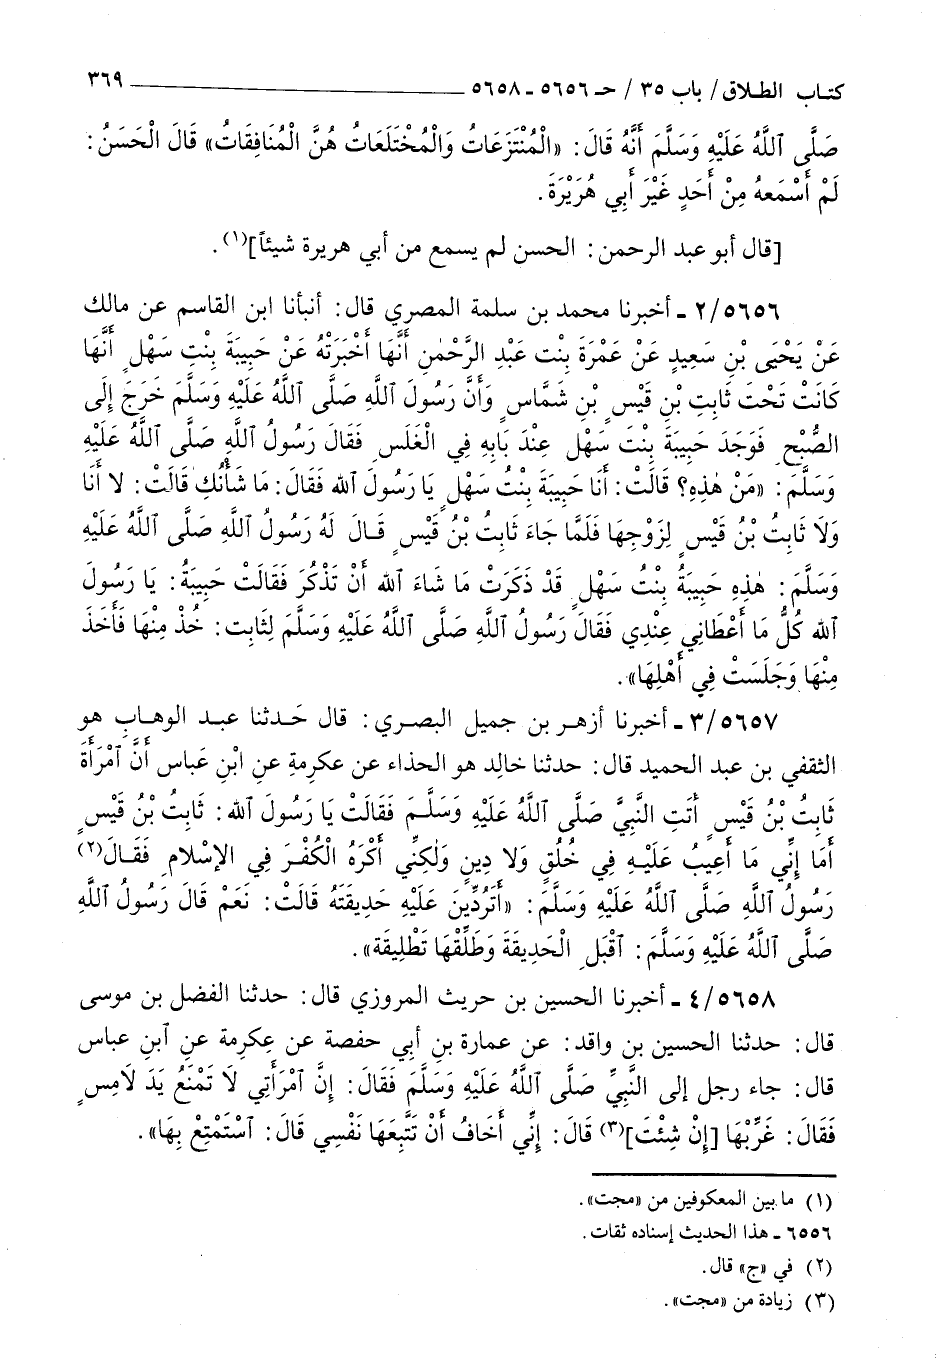 كتاب الطلاق / باب ٣٥ / حـ ٥٦٥٦ ـ ٥٦٥٨ ٣٦٩
صَلَّى ٱللَّهُ عَلَيْهِ وَسَلَّمَ أَنَّهُ قَالَ: «الْمُنْتَزَعَاتُ وَالْمُخْتَلَعَاتُ هُنَّ الْمُنَافِقَاتُ» قَالَ الْحَسَنُ:
لَمْ أَسْمَعهُ مِنْ أَحَدٍ غَيْرَ أَبِي هُرَيْرَةَ.
[قال أبو عبد الرحمن: الحسن لم يسمع من أبي هريرة شيئاً](١).
٢/٥٦٥٦ ـ أخبرنا محمد بن سلمة المصري قال: أنبأنا ابن القاسم عن مالك
عَنْ يَحْيَى بْنِ سَعِيدٍ عَنْ عَمْرَةَ بِنْت عَبْدِ الرَّحْمٰنِ أَنَّهَا أَخْبَرَتْهُ عَنْ حَبِيبَةَ بِنْتِ سَهْلٍ أَنَّهَا
كَانَتْ تَحْتَ ثَابِتِ بْنِ قَيْسِ بْنِ شَمَّاسٍ وَأَنَّ رَسُولَ اللَّهِ صَلَّى ٱللَّهُ عَلَيْهِ وَسَلَّمَ خَرَجَ إِلَى
الصُّبْحِ فَوَجَدَ حَبِيبَةَ بِنْتَ سَهْلٍ عِنْدَ بَابِهِ فِي الْغَلَسِ فَقَالَ رَسُولُ اللَّهِ صَلَّى ٱللَّهُ عَلَيْهِ
وَسَلَّمَ: «مَنْ هٰذِهِ؟ قَالَتْ: أَنَا حَبِيبَةُ بِنْتُ سَهْلٍ يَا رَسُولَ ٱلله فَقَالَ: مَا شَأْنُكِ قَالَتْ: لا أَنَا
وَلَا ثَابِتُ بْنُ قَيْسٍ لِزَوْجِهَا فَلَمَّا جَاءَ ثَابِتُ بْنُ قَيْسٍ قَالَ لَهُ رَسُولُ اللَّهِ صَلَّى ٱللَّهُ عَلَيْهِ
وَسَلَّمَ: هٰذِهِ حَبِيبَةُ بِنْتُ سَهْلٍ قَدْ ذَكَرَتْ مَا شَاءَ ٱلله أَنْ تَذْكُرَ فَقَالَتْ حَبِيبَةُ: يَا رَسُولَ
ٱلله كُلُّ مَا أَعْطَانِي عِنْدِي فَقَالَ رَسُولُ اللَّهِ صَلَّى ٱللَّهُ عَلَيْهِ وَسَلَّمَ لِثَابِت: خُذْ مِنْهَا فَأَخَذَ
مِنْهَا وَجَلَسَتْ فِي أَهْلِهَا».
٣/٥٦٥٧ ـ أخبرنا أزهر بن جميل البصري: قال حَدثنا عبد الوهاب هو
الثقفي بن عبد الحميد قال: حدثنا خالد هو الحذاء عن عكرمةِ عنِ ابْنِ عَباس أَنَّ ٱمْرَأَةَ
ثَابِتُ بْنُ قَيْسٍ أَتَتِ النَّبِيَّ صَلَّى ٱللَّهُ عَلَيْهِ وَسَلَّمَ فَقَالَتْ يَا رَسُولَ ٱلله: ثَابِتُ بْنُ قَيْسٍ
أَمَا إِنِّي مَا أَعِيبُ عَلَيْهِ فِي خُلُقٍ وَلا دِينٍ وَلٰكِنِّي أَكْرَهُ الْكُفْرَ فِي الإِسْلامِ فَقَالَ(٢)
رَسُولُ ٱللَّهِ صَلَّى ٱللَّهُ عَلَيْهِ وَسَلَّمَ: «أَتَرُدِّينَ عَلَيْهِ حَدِيقَتَهُ قَالَتْ: نَعَمْ قَالَ رَسُولُ ٱللَّهِ
صَلَّى ٱللَّهُ عَلَيْهِ وَسَلَّمَ: ٱقْبَلِ الْحَدِيقَةَ وَطَلِّقْهَا تَطْلِيقَة».
٤/٥٦٥٨ ـ أخبرنا الحسين بن حريث المروزي قال: حدثنا الفضل بن موسى
قال: حدثنا الحسين بن واقد: عن عمارة بن أبي حفصة عن عِكرمة عنِ ٱبنِ عباس
قال: جاء رجل إلى النَّبِيِّ صَلَّى ٱللَّهُ عَلَيْهِ وَسَلَّمَ فَقَالَ: إِنَّ ٱمْرَأَتِي لَا تَمْنَعُ يَدَ لَامِسٍ
فَقَالَ: غَرِّبْهَا [إِنْ شِئْتَ](٣) قَالَ: إِنِّي أَخَافُ أَنْ تَتَّبِعَهَا نَفْسِي قَالَ: ٱسْتَمْتِعْ بِهَا».
(١) ما بين المعكوفين من «مجت».
٦٥٥٦ ـ هذا الحديث إسناده ثقات.
(٢) في «ج» قال.
(٣) زيادة من «مجت».